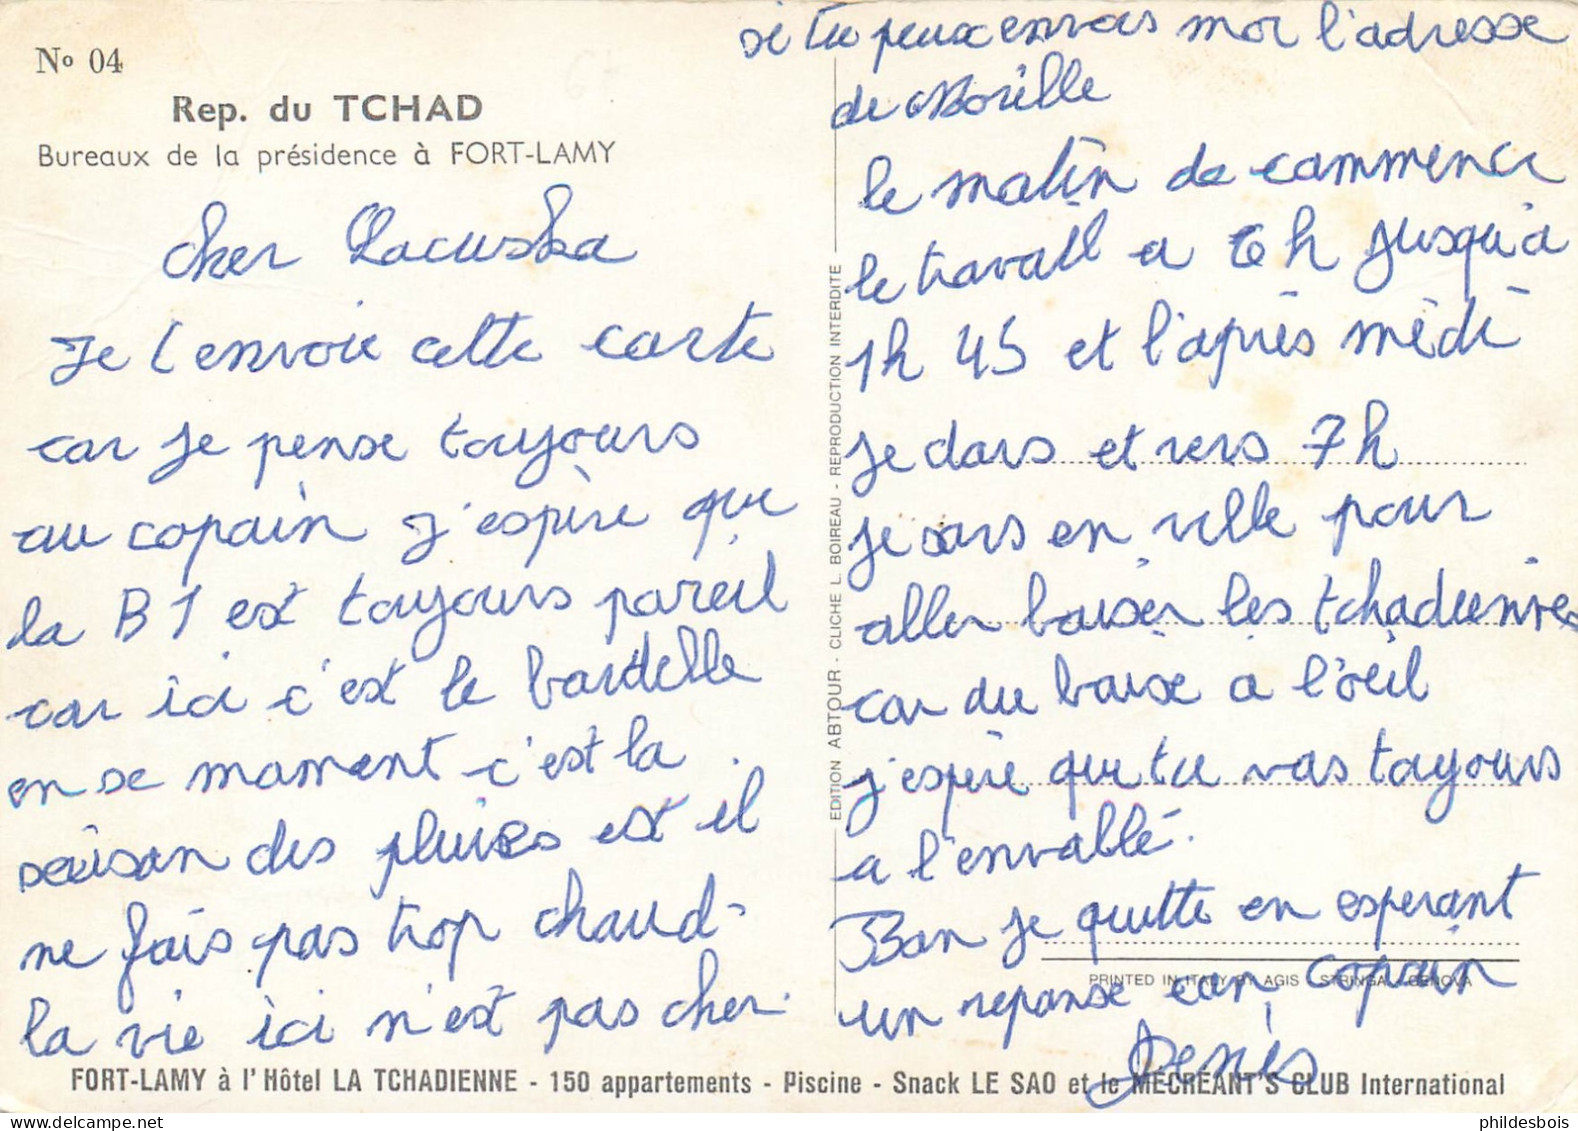 N° 04
Rep. du TCHAD
Bureaux de la présidence à FORT-LAMY
cher
Je t envoie cette carte
car je pense toujours
au copain j'espère que
la B1 est toujours pareil
car ici c'est le bordelle
en se moment c'est la
saison des pluies est il
ne fais pas trop chaud
la vie ici n'est pas cher.
si tu peux envois moi l'adresse
de
le matin de commence
le travail a 6h jusqu'a
1h 45 et l'après midi
je dors et vers 7h
je sors en ville pour
aller baiser les tchadiennes
car on baise a l'oeil
j'espère que tu vas toujours
a l'envallé.
Bon je quitte en esperant
un reponse copain
Denis
EDITION ABTOUR - CLICHE L. BOIREAU - REPRODUCTION INTERDITE
PRINTED IN ITALY BY AGIS - STRINGA - GENOVA
FORT-LAMY à l'Hôtel LA TCHADIENNE - 150 appartements - Piscine - Snack LE SAO et le MECREANT'S CLUB International
phildesbois